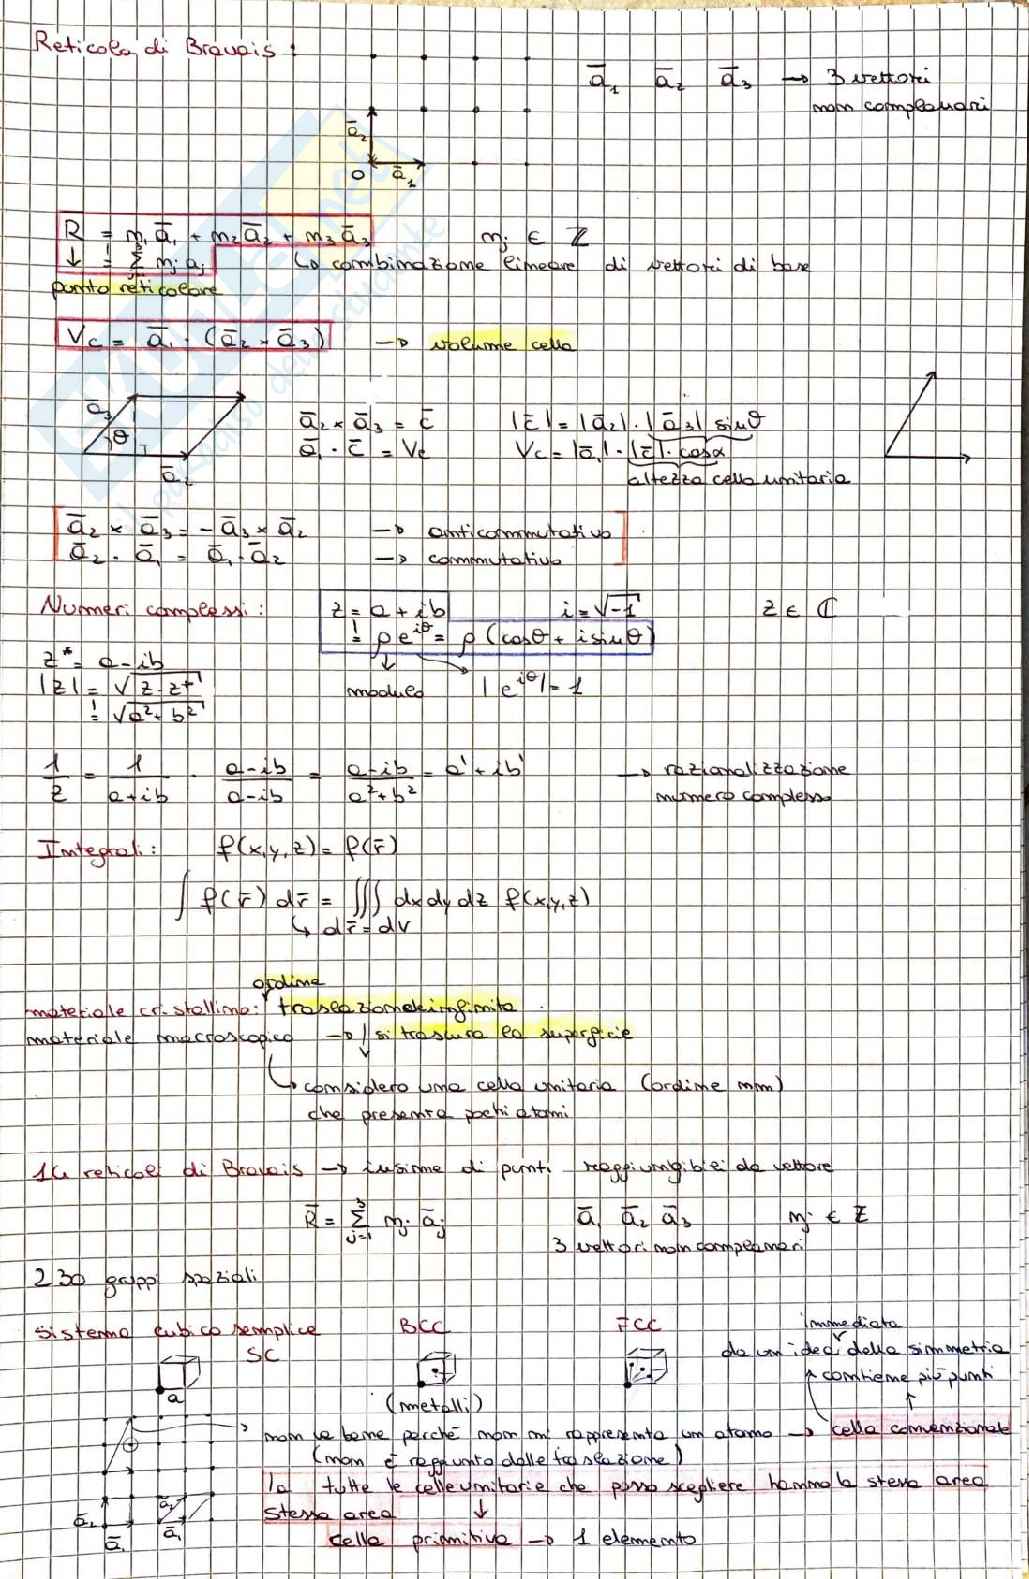 Reticolo di Bravais:
a̅₁ a̅₂ a̅₃ → 3 vettori
non complanari
a̅₂
O a̅₁
R = n₁a̅₁ + n₂a̅₂ + n₃a̅₃ nⱼ ∈ ℤ
↓ = Σ nⱼaⱼ ↳ combinazione lineare di vettori di base
punto reticolare
Vc = a̅₁ · (a̅₂ × a̅₃) → volume cella
a̅₃ θ a̅₂
a̅₂ × a̅₃ = c̅ |c̅| = |a̅₂| · |a̅₃| sinθ
a̅₁ · c̅ = Vc Vc = |a̅₁| · |c̅| · cosα
altezza cella unitaria
a̅₂ × a̅₃ = -a̅₃ × a̅₂ → anticommutativo
a̅₂ · a̅₁ = a̅₁ · a̅₂ → commutativo
Numeri complessi: z = a + ib i = √-1 z ∈ ℂ
= ρe^{iθ} = ρ(cosθ + i sinθ)
z* = a - ib
|z| = √z·z* modulo |e^{iθ}| = 1
= √a²+b²
1/z = 1/(a+ib) · (a-ib)/(a-ib) = (a-ib)/(a²+b²) = a' + ib' → razionalizzazione
numero complesso
Integrali: f(x,y,z) = f(r̅)
∫ f(r̅) dr̅ = ∭ dxdydz f(x,y,z)
↳ dr̅ = dV
ordine
materiale cristallino: traslazionale infinito
materiale macroscopico → si trascura la superficie
↳ considero una cella unitaria (ordine nm)
che presenta pochi atomi
14 reticoli di Bravais → insieme di punti raggiungibili da vettore
R̅ = Σ_{j=1}^{3} nⱼ a̅ⱼ a̅₁ a̅₂ a̅₃ nⱼ ∈ ℤ
3 vettori non complanari
230 gruppi spaziali
Sistema cubico semplice BCC FCC immediata
SC da un'idea della simmetria
a contiene più punti
(metalli)
non va bene perché non mi rappresenta un atomo → cella convenzionale
(non è raggiunto dalle traslazione)
tutte le celle unitarie che posso scegliere hanno la stessa area
a̅₂ a̅₁ a̅₂ a̅₁ stessa area ↓
cella primitiva → 1 elemento